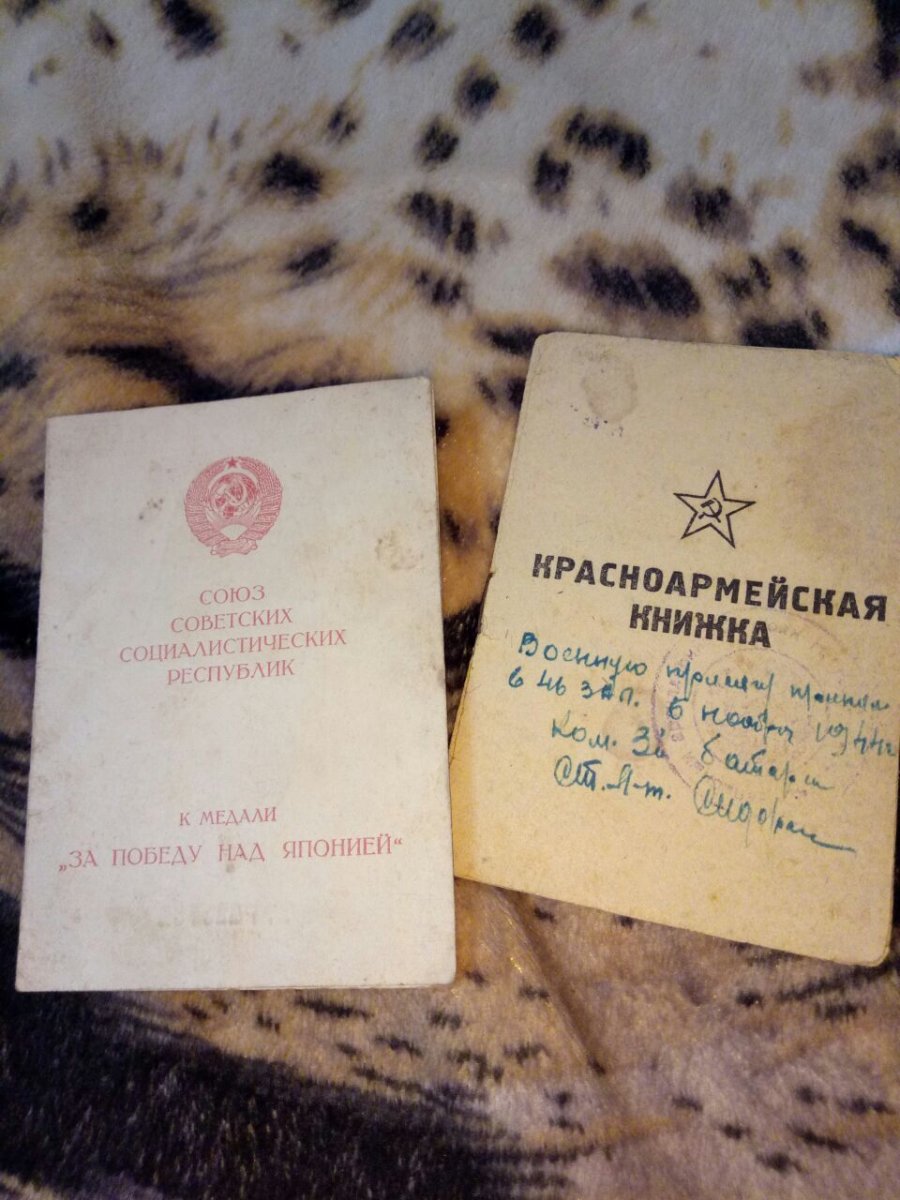 СОЮЗ
СОВЕТСКИХ
СОЦИАЛИСТИЧЕСКИХ
РЕСПУБЛИК
К МЕДАЛИ
„ЗА ПОБЕДУ НАД ЯПОНИЕЙ“
КРАСНОАРМЕЙСКАЯ
КНИЖКА
Военную присягу принял
в 46 зап. 6 ноября 1944 г
Ком. батареи
Ст. Л-т.